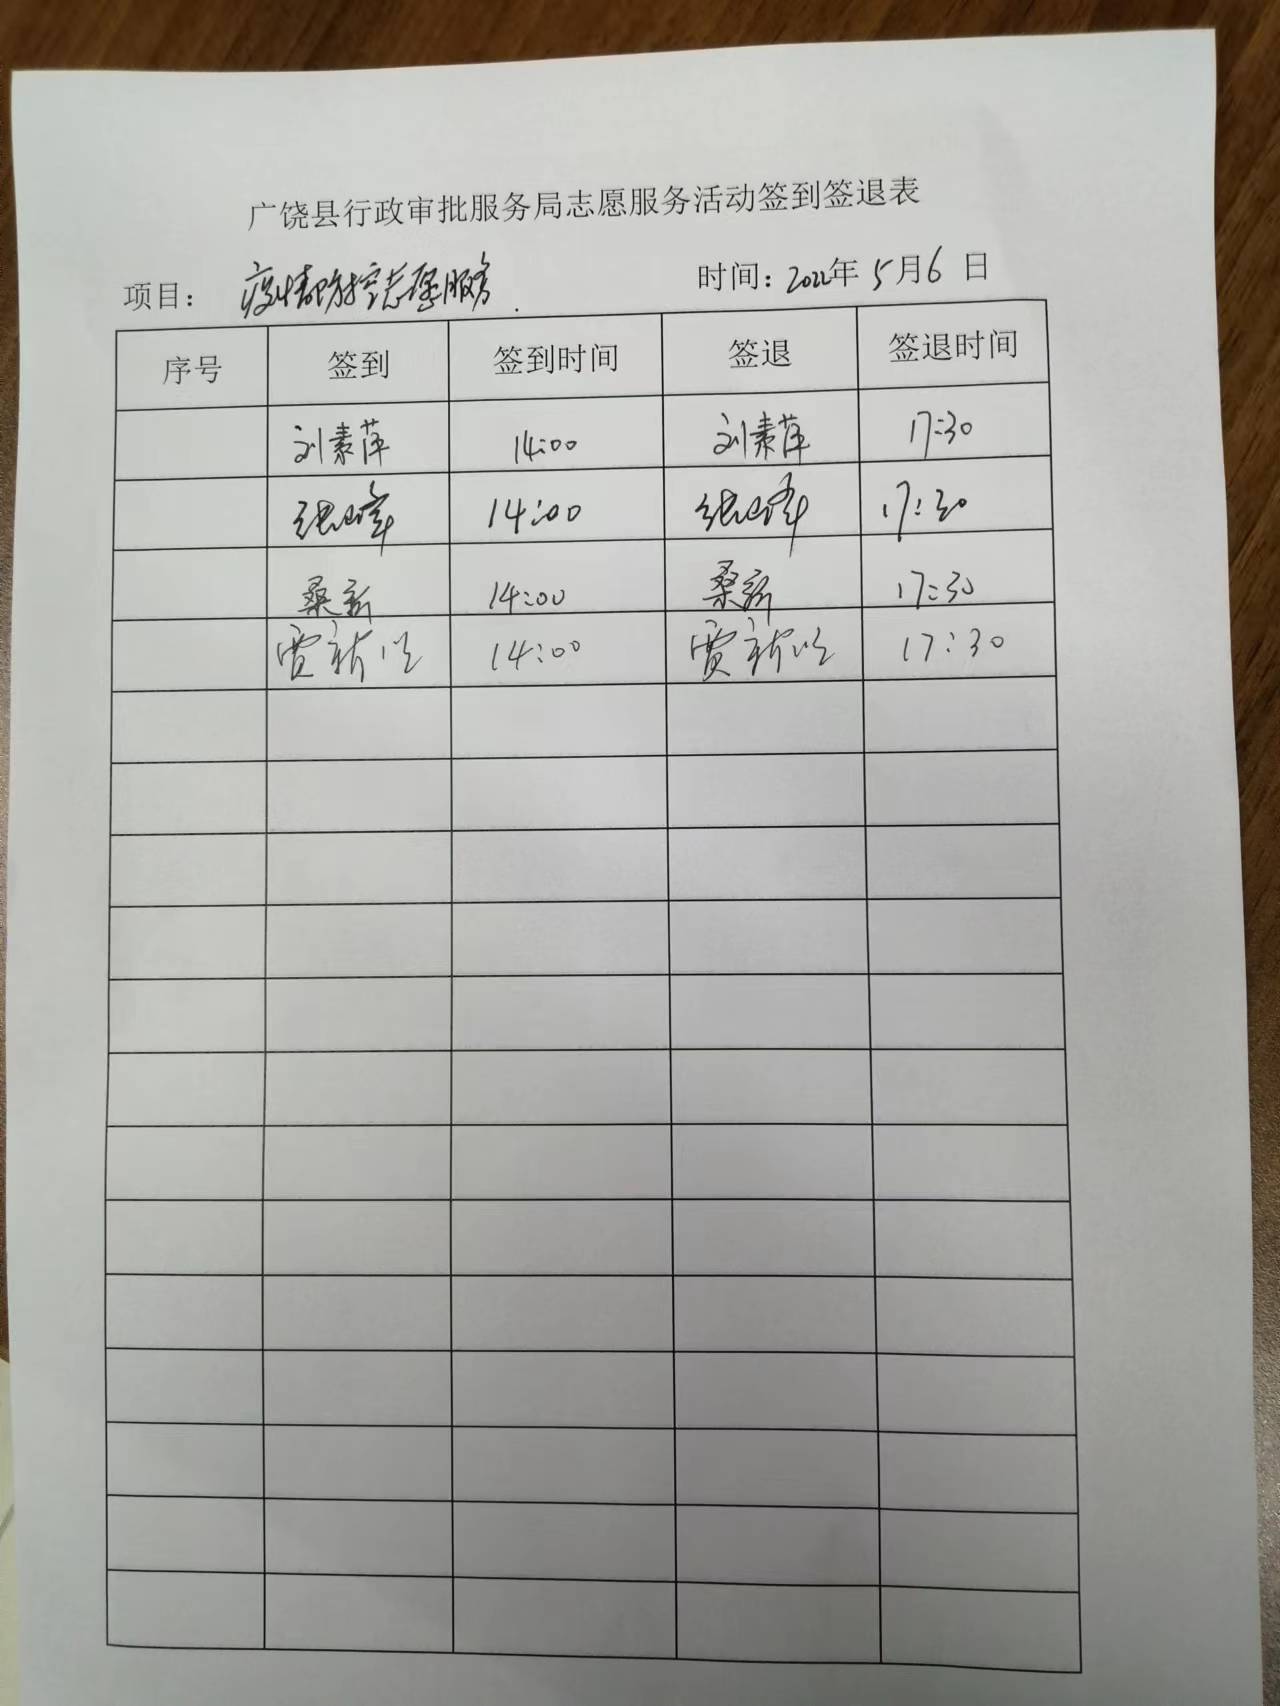 广饶县行政审批服务局志愿服务活动签到签退表
项目： 疫情防控志愿服务. 时间：2022年 5月6 日
序号 签到 签到时间 签退 签退时间
刘素萍 14:00 刘素萍 17:30
张峰 14:00 张峰 17:30
桑新 14:00 桑新 17:30
贾 14:00 贾 17:30